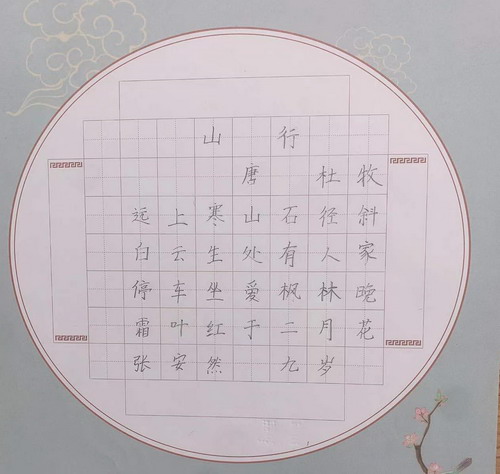 山行
唐 杜牧
远上寒山石径斜
白云生处有人家
停车坐愛枫林晚
霜叶红于二月花
张安然 九岁